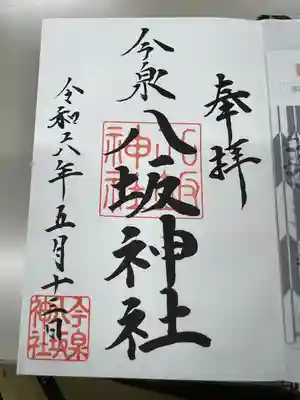 奉拝
今泉
八坂神社
八坂神社
令和六年五月十二日
今泉八坂神社